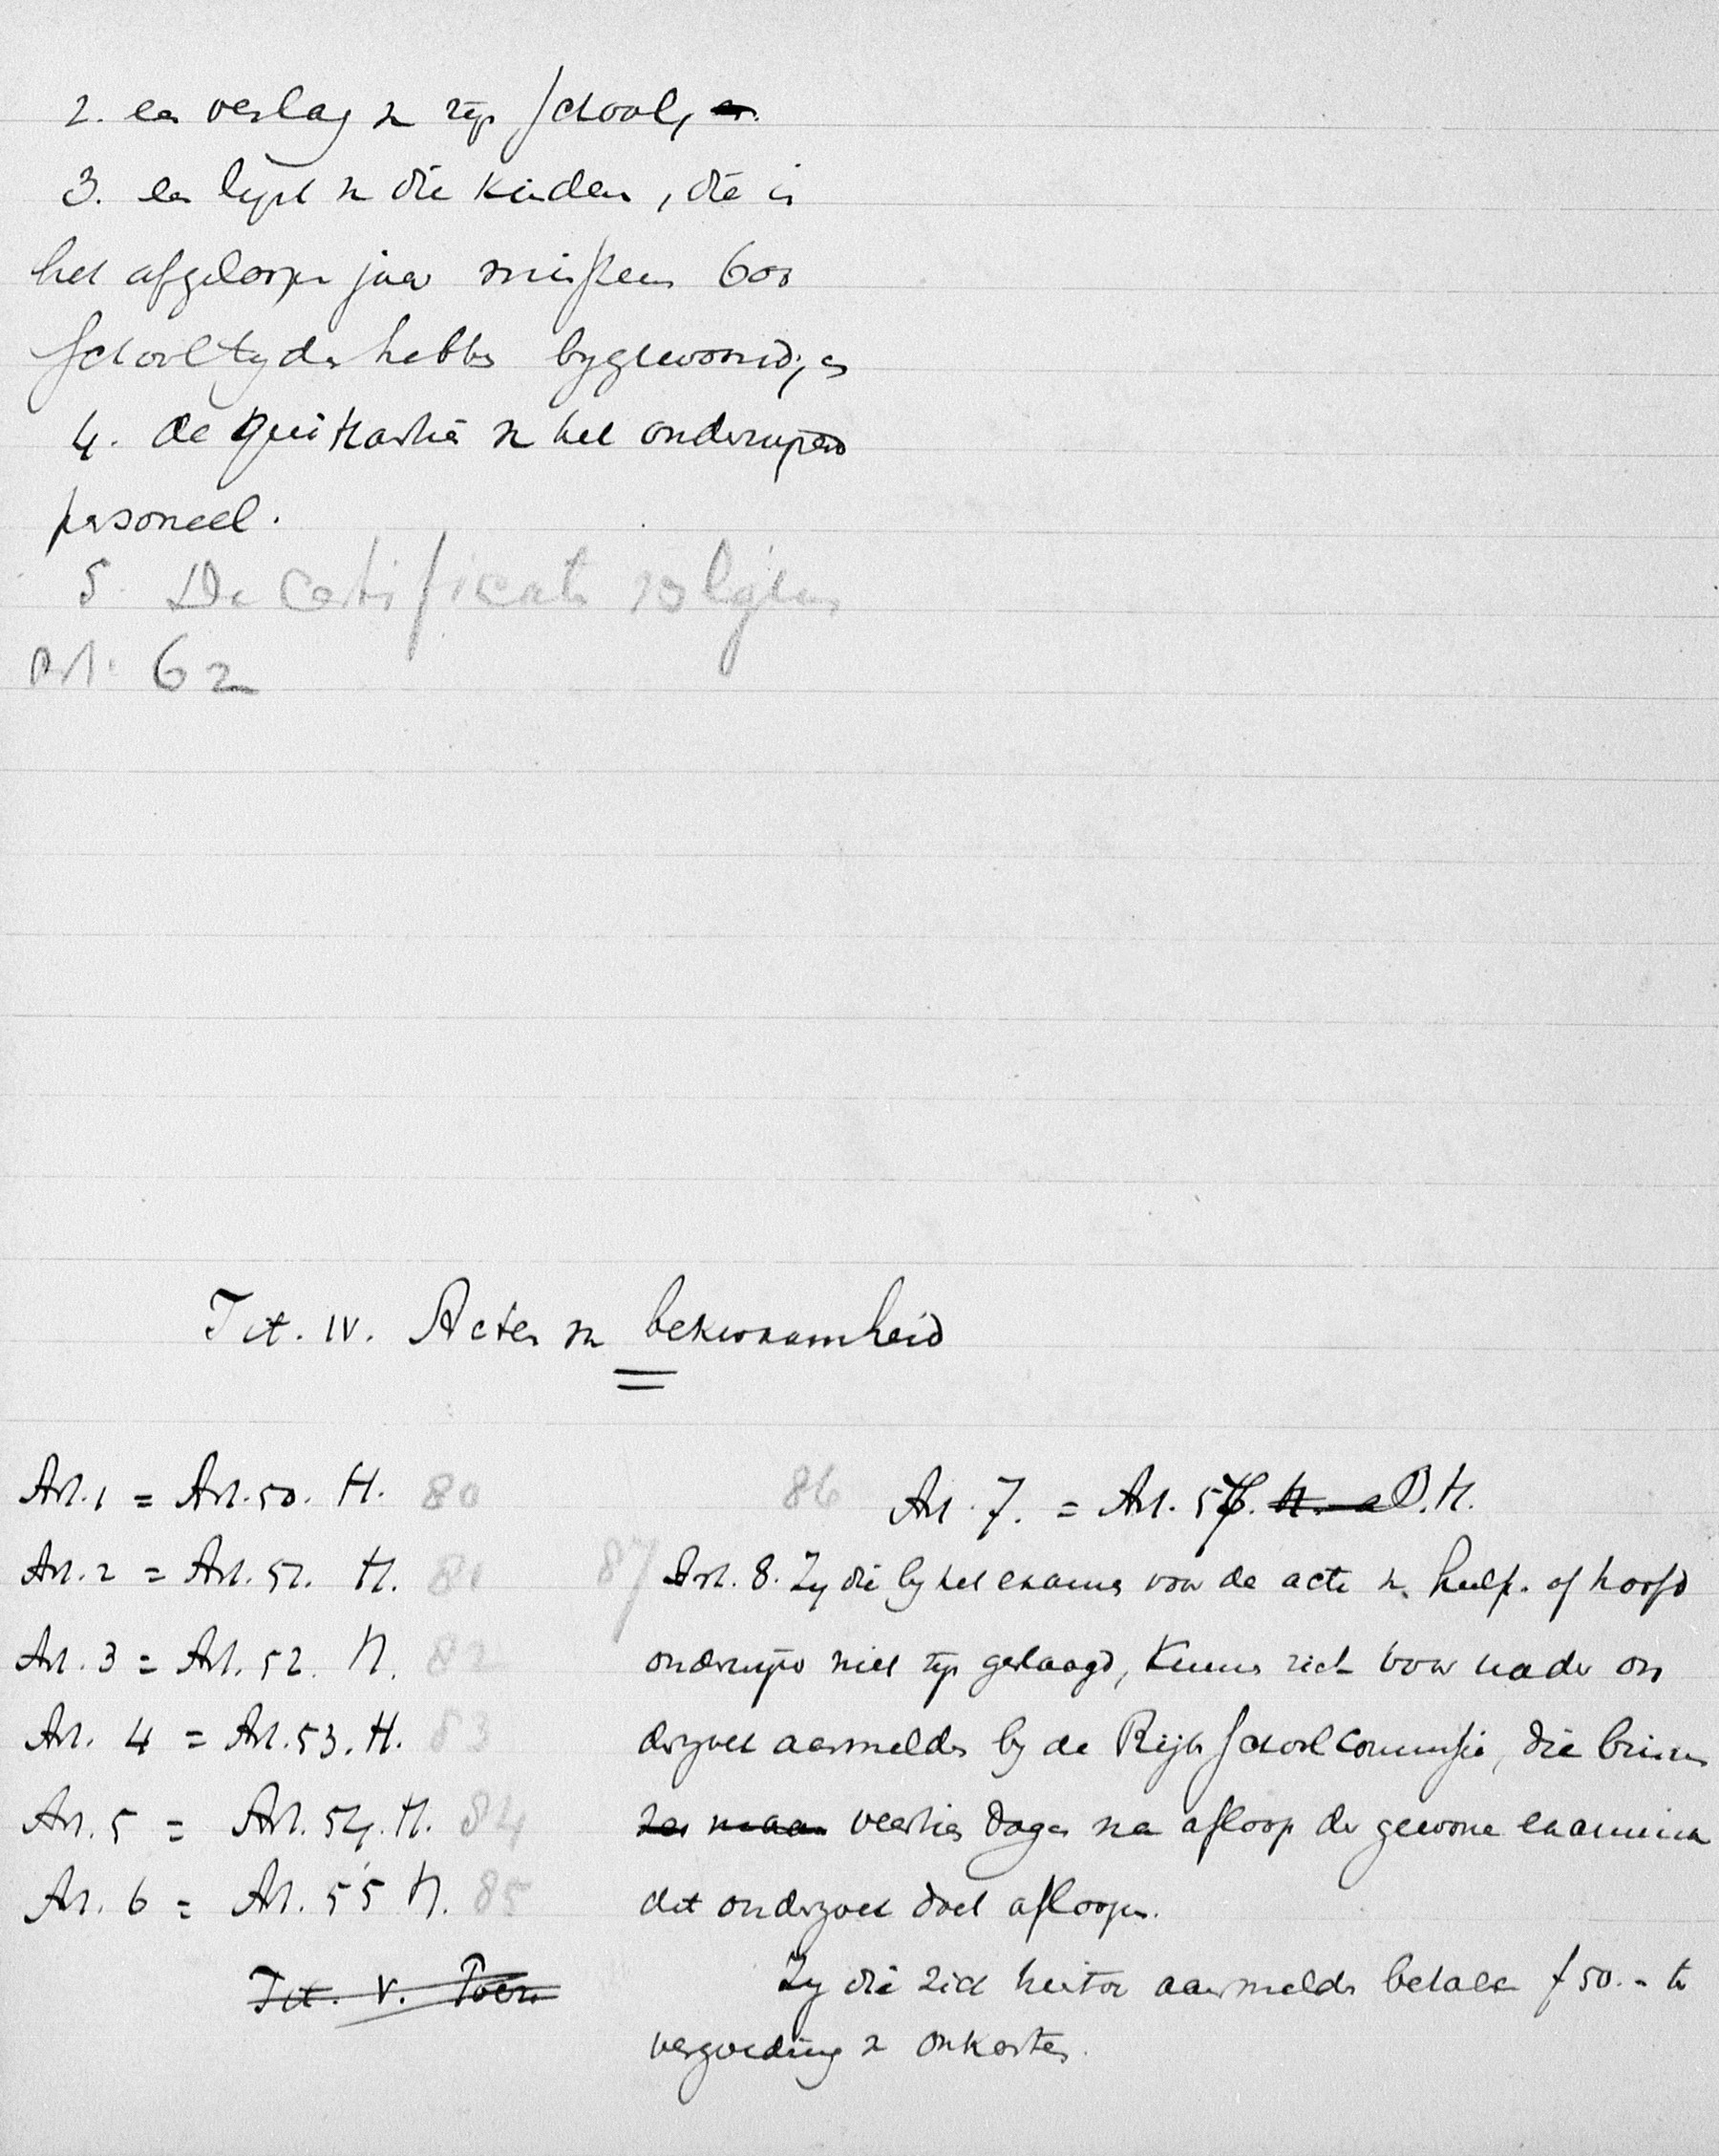 2. een verslag v. zijn school, en
3. een lijst v. die kinderen, die in
het afgeloopen jaar minstens 600
schooltyden hebben bygewoond; en
4. de quitantiën v. het onderwijzend
personeel.
5. De certificaten volgens
Art. 62
Tit. IV. Acten v. bekwaamheid
Art. 1 = Art. 50. H. 80
Art. 2 = Art. 51. H. 81
Art. 3 = Art. 52. H. 82
Art. 4 = Art. 53. H. 83
Art. 5 = Art. 54. H. 84
Art. 6 = Art. 55 H. 85
Tit. V.
86 Art. 7. = Art. 57. H.
87 Art. 8. Zy die by het examen voor de acte v. hulp- of hoofd
onderwijs niet zijn geslaagd, kunnen zich voor nader on
derzoek aanmelden by de Rijks schoolcommissie, die binnen
veertien dagen na afloop der gewone examina
dit onderzoek doet afloopen.
Zy die zich hiertoe aanmelden betalen f 50.- te
vergoeding v. onkosten.